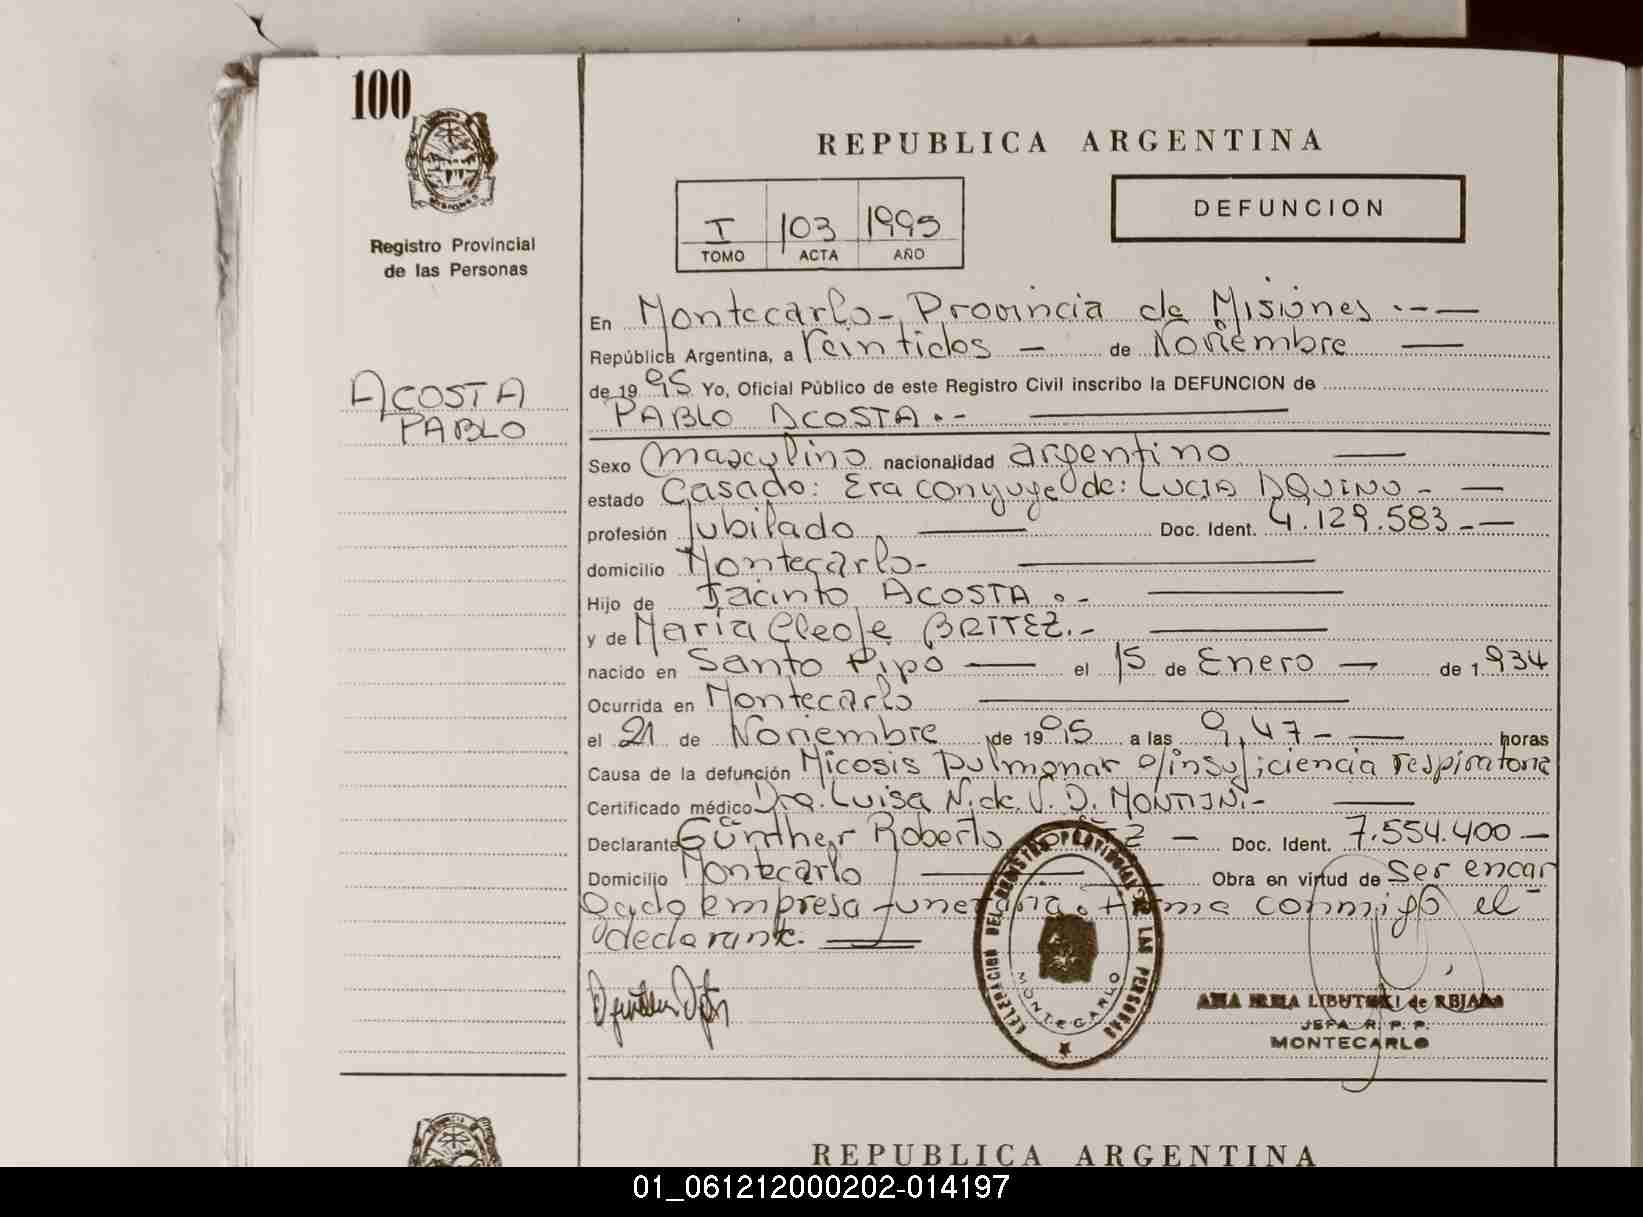 100
Registro Provincial
de las Personas
ACOSTA
PABLO
REPUBLICA ARGENTINA
I 103 1995
TOMO ACTA AÑO
DEFUNCION
En Montecarlo - Provincia de Misiones . - —
República Argentina, a Veintidos — de Noviembre —
de 19 95 Yo, Oficial Público de este Registro Civil inscribo la DEFUNCION de
PABLO ACOSTA . -
Sexo masculino nacionalidad argentino —
estado Casado: Era conyuge de: LUCIA AQUINO - —
profesión Jubilado — Doc. Ident. 4.129.583 - —
domicilio Montecarlo -
Hijo de Jacinto ACOSTA . -
y de Maria Cleofe BRITEZ. -
nacido en Santo Pipo — el 15 de Enero — de 1 934
Ocurrida en Montecarlo
el 21 de Noviembre de 19 95 a las 9,47 - — horas
Causa de la defunción Micosis pulmonar c/insuficiencia respiratoria
Certificado médico Dra. Luisa N. de V. D. MONTINI. -
Declarante Günther Roberto — Doc. Ident. 7.554.400 —
Domicilio Montecarlo — Obra en virtud de Ser encar
gado empresa funeraria. Firma conmigo el
declarante.
DELEGACION DEL REGISTRO PROVINCIAL DE LAS PERSONAS
MONTECARLO
ANA de
JEFA R. P. P.
MONTECARLO
REPUBLICA ARGENTINA
01_061212000202-014197